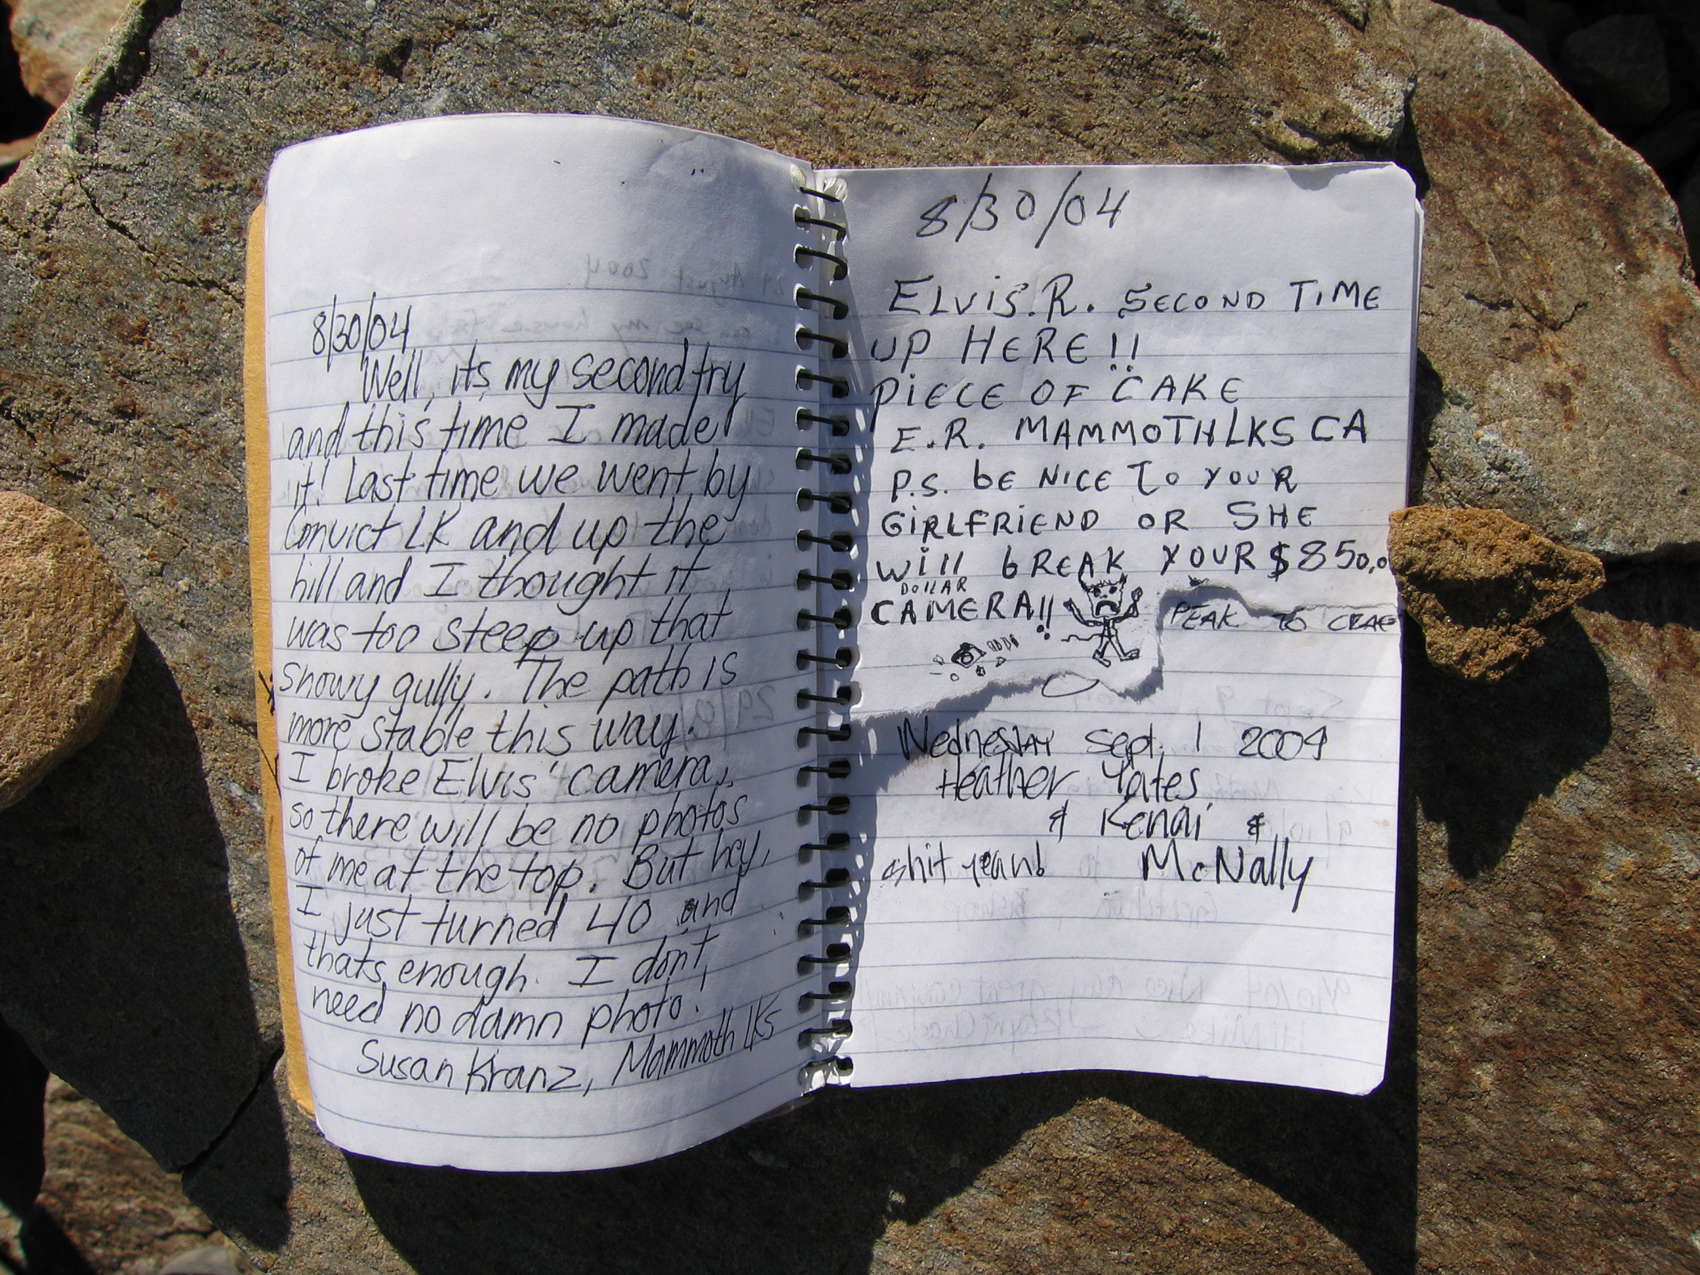 8/30/04
Well, its my second try
and this time I made
it! Last time we went by
Convict LK and up the
hill and I thought it
was too steep up that
snowy gully. The path is
more stable this way.
I broke Elvis' camera,
so there will be no photos
of me at the top. But hey,
I just turned 40 and
thats enough. I don't
need no damn photo.
Susan Kranz, Mammoth lKs
8/30/04
ELVIS.R. SECOND TIME
UP HERE!!
PIECE OF CAKE
E.R. MAMMOTH LKS CA
P.S. BE NICE TO YOUR
GIRLFRIEND OR SHE
WILL BREAK YOUR $850.0
DOLLAR
CAMERA!!
PEAK TO
Wednesday Sept. 1 2004
Heather Yates
& Kenai &
shit yeah! McNally